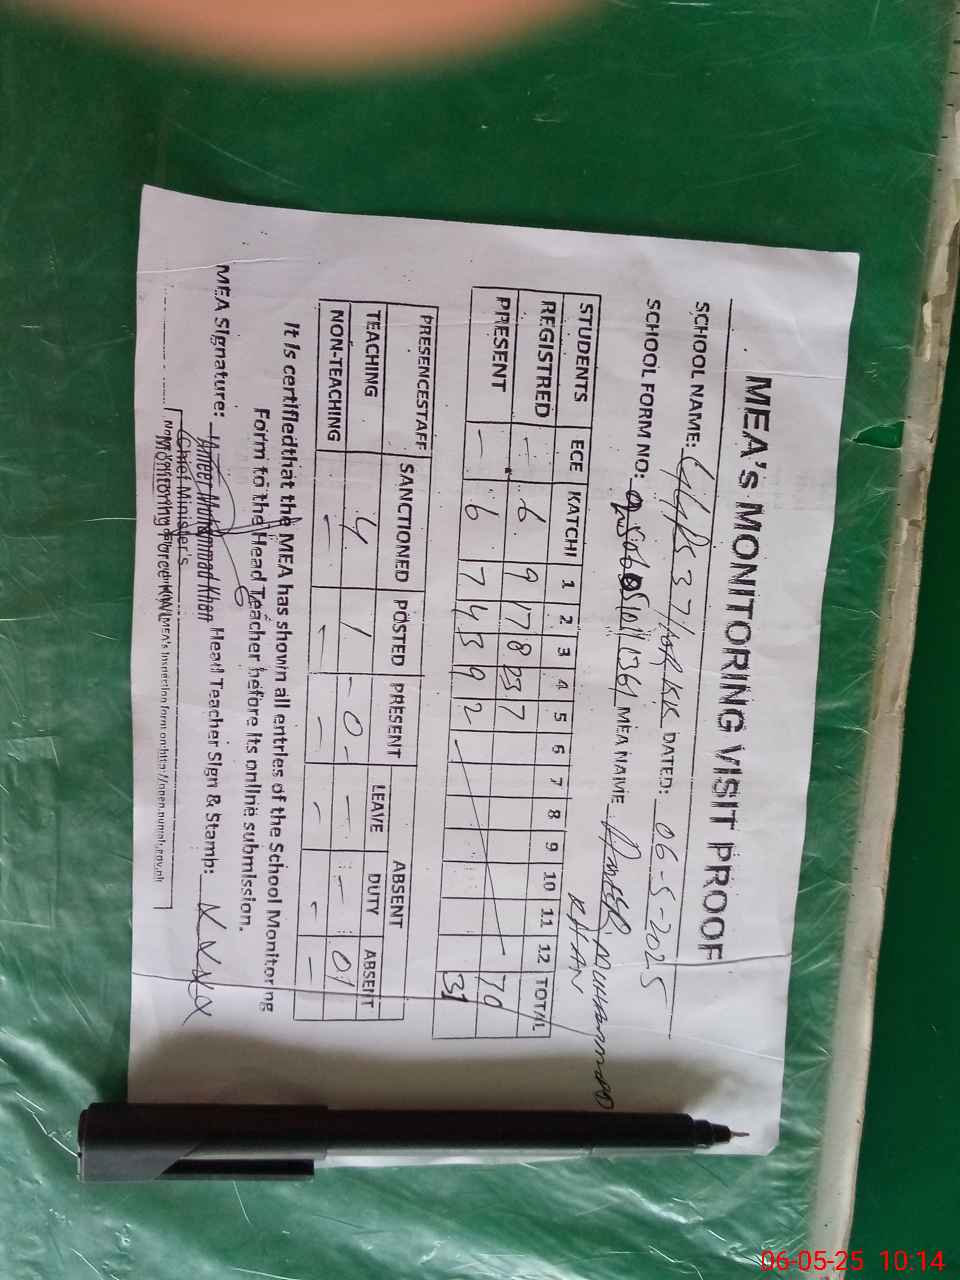 MEA's MONITORING VISIT PROOF
SCHOOL NAME: DATED: 06-5-2025
SCHOOL FORM NO: MEA NAME AMEER MUHAMMAD
KHAN
STUDENTS ECE KATCHI 1 2 3 4 5 6 7 8 9 10 11 12 TOTAL
REGISTRED - 6 9 17 8 23 7 70
PRESENT - 6 7 4 3 9 2 31
PRESENCESTAFF SANCTIONED POSTED PRESENT ABSENT
LEAVE DUTY ABSENT
TEACHING 4 1 -0- - - 01
NON-TEACHING - - - - - -
It is certifiedthat the MEA has shown all entries of the School Monitoring
Form to the Head Teacher before its online submission.
MEA Signature: Ameer Muhammad Khan Head Teacher Sign & Stamp: X X X X
Chief Minister's
Monitoring
06-05-25 10:14